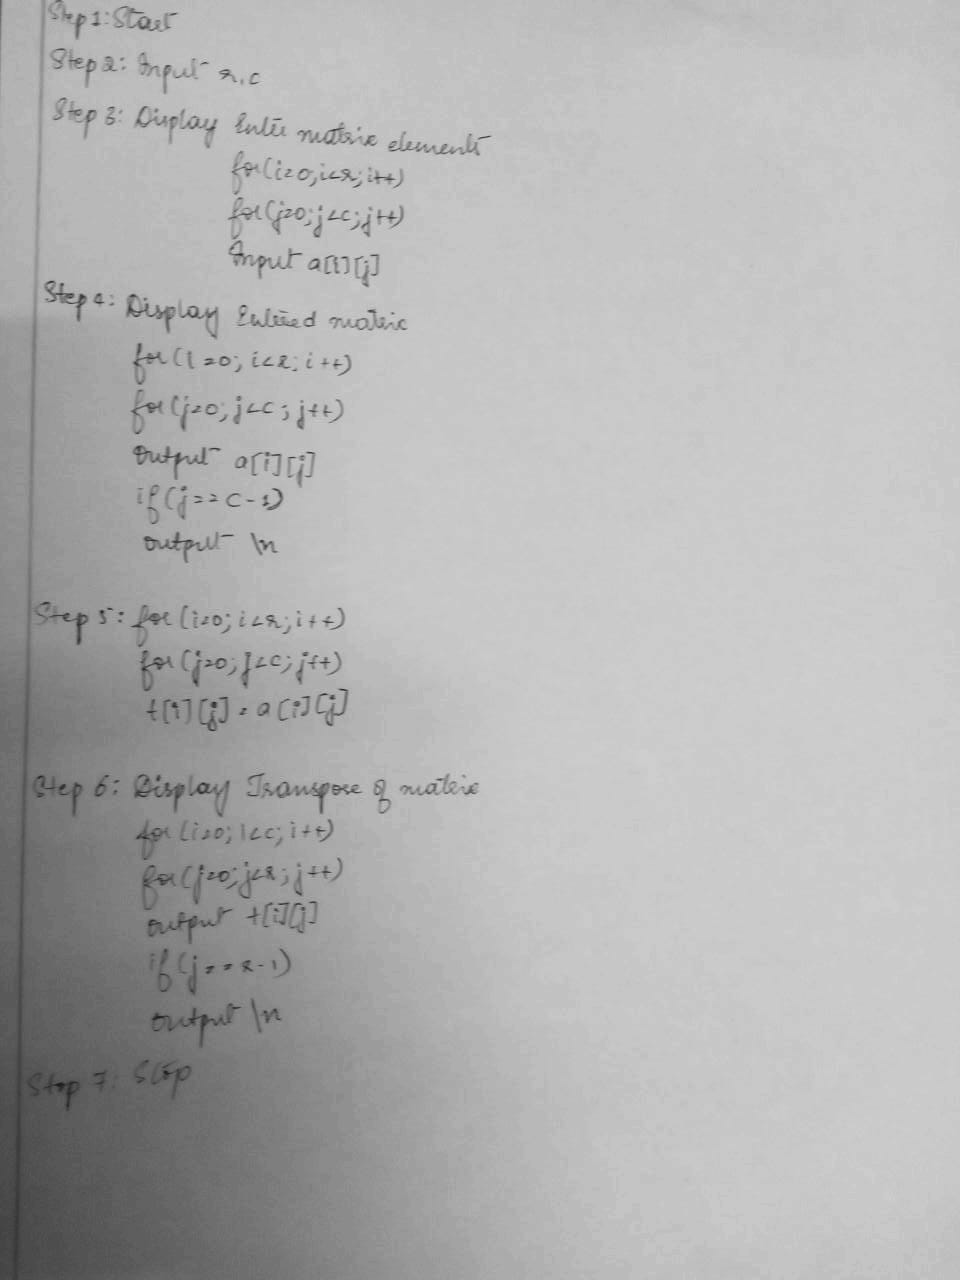 Step 1: Start
Step 2: Input r, c
Step 3: Display Enter matrix elements
for(i=0;i<r;i++)
for(j=0;j<c;j++)
Input a[i][j]
Step 4: Display Entered matrix
for(i=0; i<r; i++)
for(j=0; j<c; j++)
Output a[i][j]
if(j==c-1)
output \n
Step 5: for(i=0; i<r; i++)
for(j=0; j<c; j++)
t[i][j] = a[i][j]
Step 6: Display Transpose of matrix
for(i=0; i<c; i++)
for(j=0;j<r; j++)
output t[i][j]
if(j==r-1)
output \n
Step 7: Stop